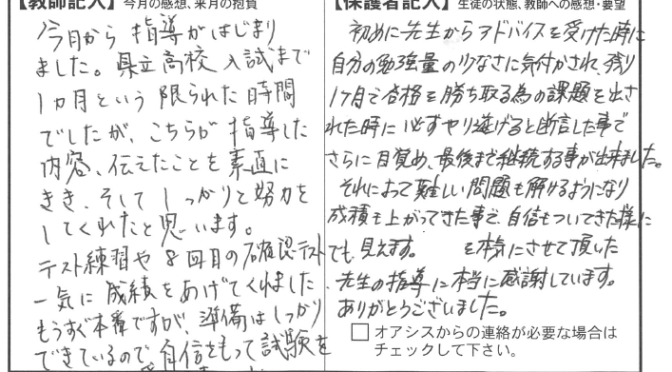 【教師記入】今月の感想、来月の抱負
今月から指導がはじまり
ました。県立高校入試まで
1ヵ月という限られた時間
でしたが、こちらが指導した
内容、伝えたことを素直に
きき、そしてしっかりと努力を
してくれたと思います。
テスト練習や8回目の確認テスト
一気に成績をあげてくれました
もうすぐ本番ですが、準備はしっかり
できているので、自信をもって試験を
【保護者記入】生徒の状態、教師への感想・要望
初めに先生からアドバイスを受けた時に
自分の勉強量の少なさに気付かされ、残り
1ヶ月で合格を勝ち取る為の課題を出さ
れた時に必ずやり遂げると断言した事で
さらに目覚め、最後まで継続する事が出来ました。
それによって難しい問題も解けるようになり
成積も上がってきた事で、自信もついてきた様に
でも見えます。 を本気にさせて頂いた
先生の指導に本当に感謝しています。
ありがとうございました。
□ オアシスからの連絡が必要な場合は
チェックして下さい。